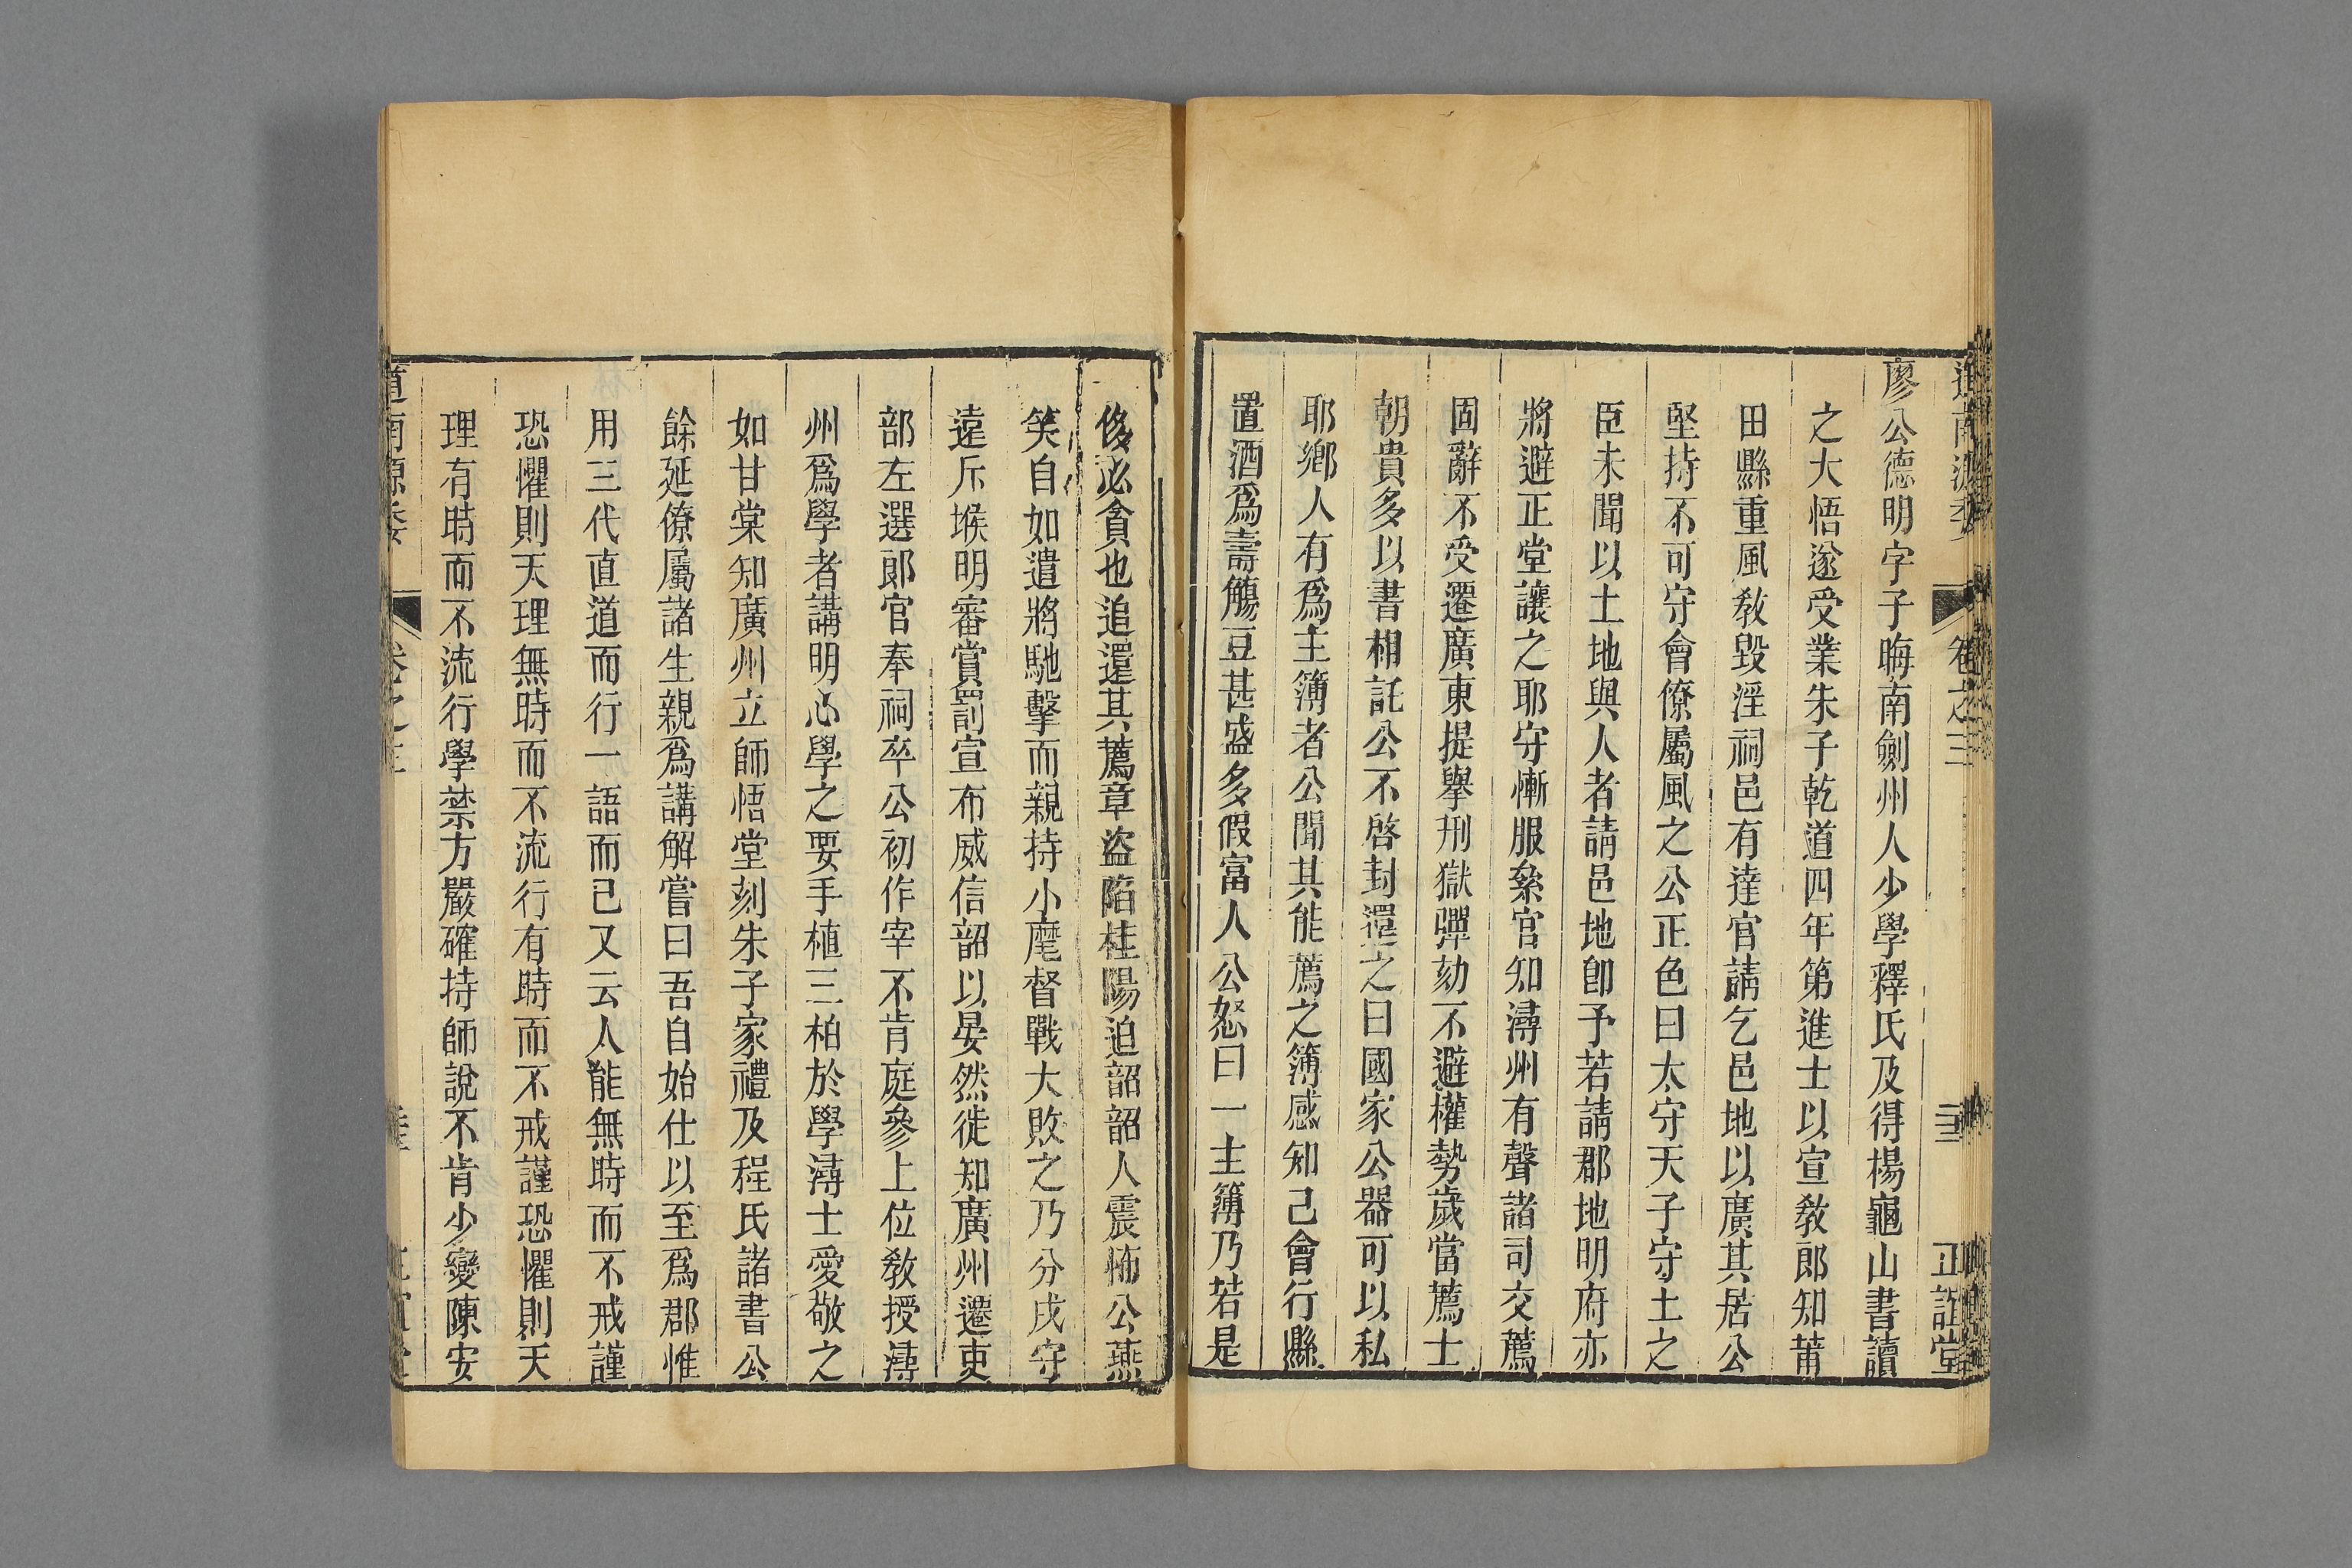 卷之三
正誼堂
廖公德明字子晦南劍州人少學釋氏及得楊龜山書讀
之大悟遂受業朱子乾道四年第進士以宣敎郎知莆
田縣重風敎毀淫祠邑有達官請乞邑地以廣其居公
堅持不可守會僚屬風之公正色曰太守天子守土之
臣未聞以土地與人者請邑地卽予若請郡地明府亦
將避正堂讓之耶守慚服粂官知潯州有聲諸司交薦
固辭不受遷廣東提舉刑獄彈劾不避權勢歲當薦士
朝貴多以書相託公不啓封還之曰國家公器可以私
耶鄉人有爲主簿者公聞其能薦之簿感知己會行縣
置酒爲壽觴豆甚盛多假富人公怒曰一主簿乃若是
侈必貪也追還其薦章盜陷桂陽迫韶韶人震怖公燕
笑自如遣將馳擊而親持小麾督戰大敗之乃分戍守
遠斥堠明審賞罰宣布威信韶以晏然徙知廣州遷吏
部左選郎官奉祠卒公初作宰不肯庭參上位敎授潯
州爲學者講明心學之要手植三柏於學潯士愛敬之
如甘棠知廣州立師悟堂刻朱子家禮及程氏諸書公
餘延僚屬諸生親爲講解嘗曰吾自始仕以至爲郡惟
用三代直道而行一語而已又云人能無時而不戒謹
恐懼則天理無時而不流行有時而不戒謹恐懼則天
理有時而不流行學禁方嚴確持師說不肯少變陳安
道南源委
卷之三